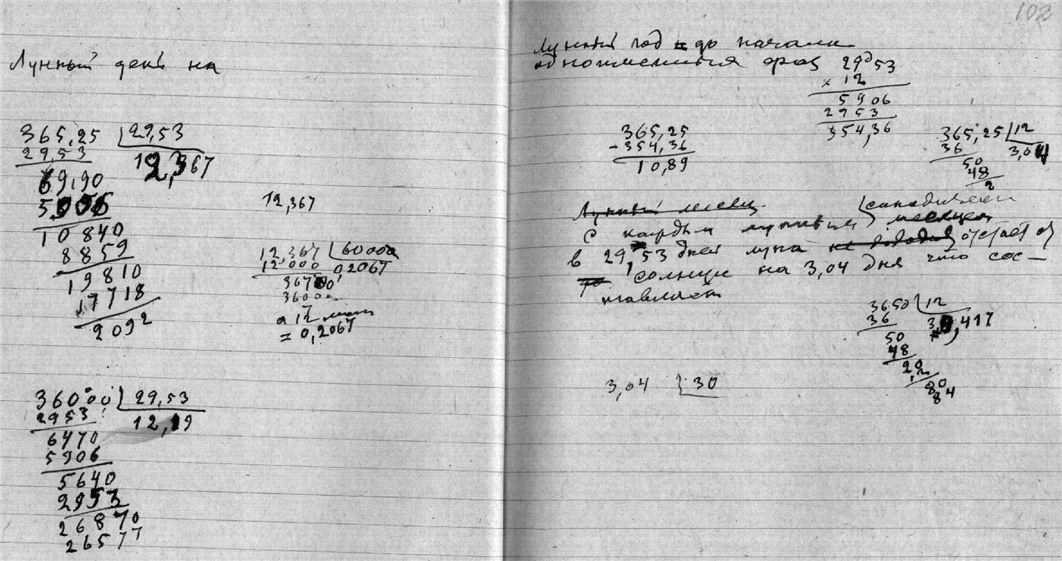 Лунный день на
365,25 29,53
29,53 12,367
69,90
5906
10840
8859
19810
17718
2092
12,367
12,367 60000
12,000 0,2067
36700
36000
= 0,2067
36000 29,53
2953 12,19
6470
5906
5640
2953
26870
26577
102
Лунный год до начала
одноименных фаз 29,53
× 12
5906
2953
354,36
365,25
-354,36
10,89
365,25 12
36 3,04
50
48
2
Лунный месяц
С каждым лунным синодическим месяцем
в 29,53 дней луна не доходит отстает от
солнца на 3,04 дня что сос-
тавляет
3650 12
36 417
50
48
20
12
80
84
3,04 30